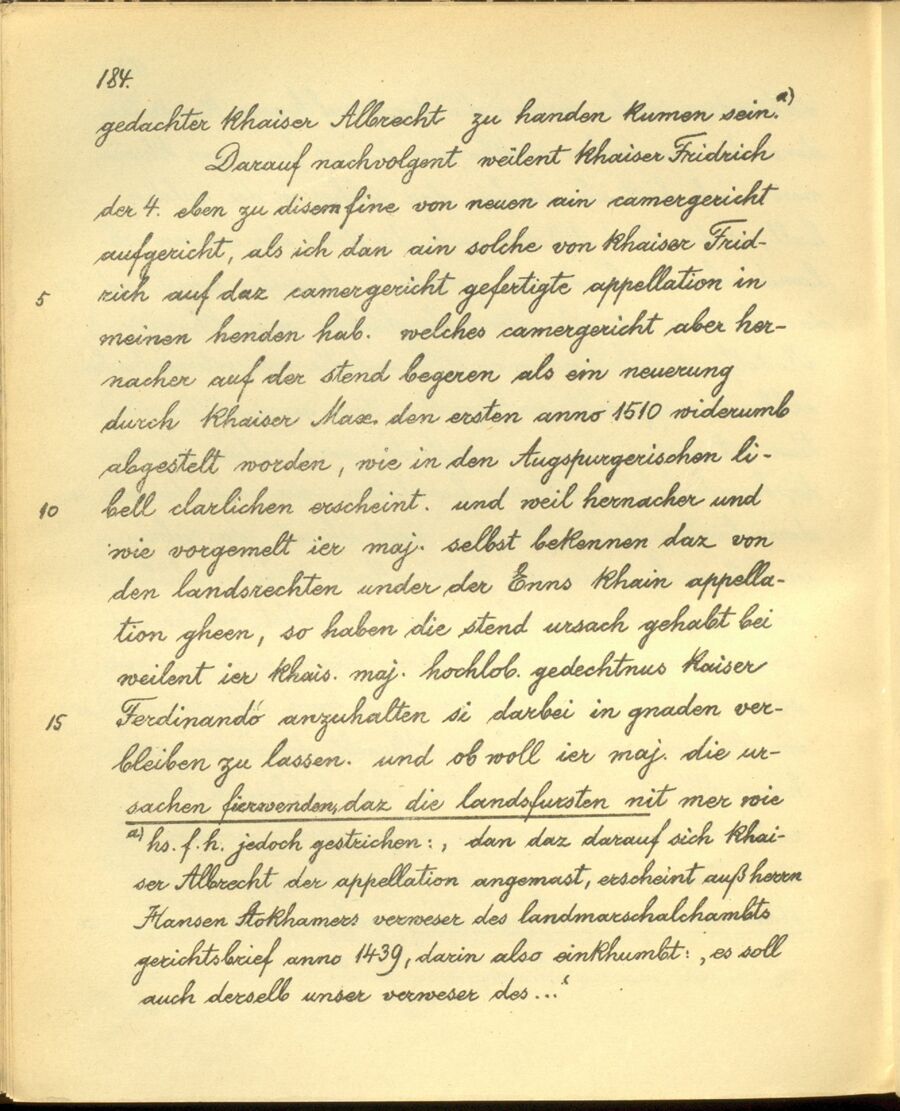 184.
gedachter khaiser Albrecht zu handen kumen sein. a)
Darauf nachvolgent weilent khaiser Fridrich
der 4. eben zu disem fine von neuen ain camergericht
aufgericht, als ich dan ain solche von khaiser Frid-
5 rich auf daz camergericht gefertigte appellation in
meinen henden hab. welches camergericht aber her-
nacher auf der stend begeren als ein neuerung
durch khaiser Max. den ersten anno 1510 widerumb
abgestelt worden, wie in den Augspurgerischen li-
10 bell clarlichen erscheint. und weil hernacher und
wie vorgemelt ier maj. selbst bekennen daz von
den landsrechten under der Enns khain appella-
tion gheen, so haben die stend ursach gehabt bei
weilent ier khais. maj. hochlob. gedechtnus kaiser
15 Ferdinando anzuhalten si darbei in gnaden ver-
bleiben zu lassen. und ob woll ier maj. die ur-
sachen fierwenden, daz die landsfursten nit mer wie
a) hs. f. h. jedoch gestrichen: ‚ dan daz darauf sich khai-
ser Albrecht der appellation angemast, erscheint auß herrn
Hansen Stokhamers verweser des landmarschalchambts
gerichtsbrief anno 1439, darin also einkhumbt: ‚es soll
auch derselb unser verweser des ...‘